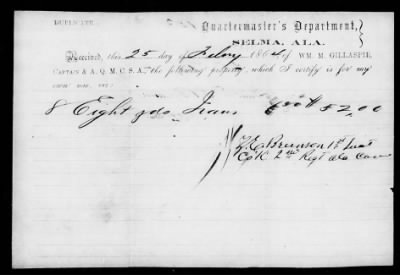 DUPLICATE.
Quartermaster's Department,
SELMA, ALA.
Received, this 25 day of Febry 1864 of WM. M. GILLASPIE,
CAPTAIN & A. Q. M. C. S. A., the following property, which I certify is for my
own use, viz:
8 Eight yds 52,00
Brunson 1st Lieut
Co K 2nd Regt Ala Cav